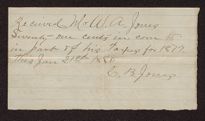 Recived Mr W. A. Jones
Seventy-one cents in corn
in part of his Taxes for 1877
This Jan 21st 1880
E. B. Jones